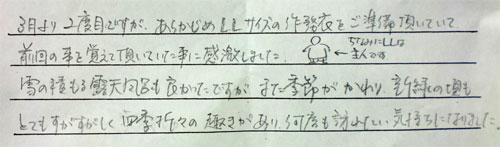 3月より2度目ですが、あらかじめLLサイズの作務衣をご準備頂いていて
前回の事を覚えて頂いていた事に感激しました
ちなみにLLは
←主人です
雪の積もる露天風呂も良かったですが また季節がかわり、新緑の頃も
とてもすがすがしく 四季折々の趣きがあり、何度も訪れたい気持ちになりました。